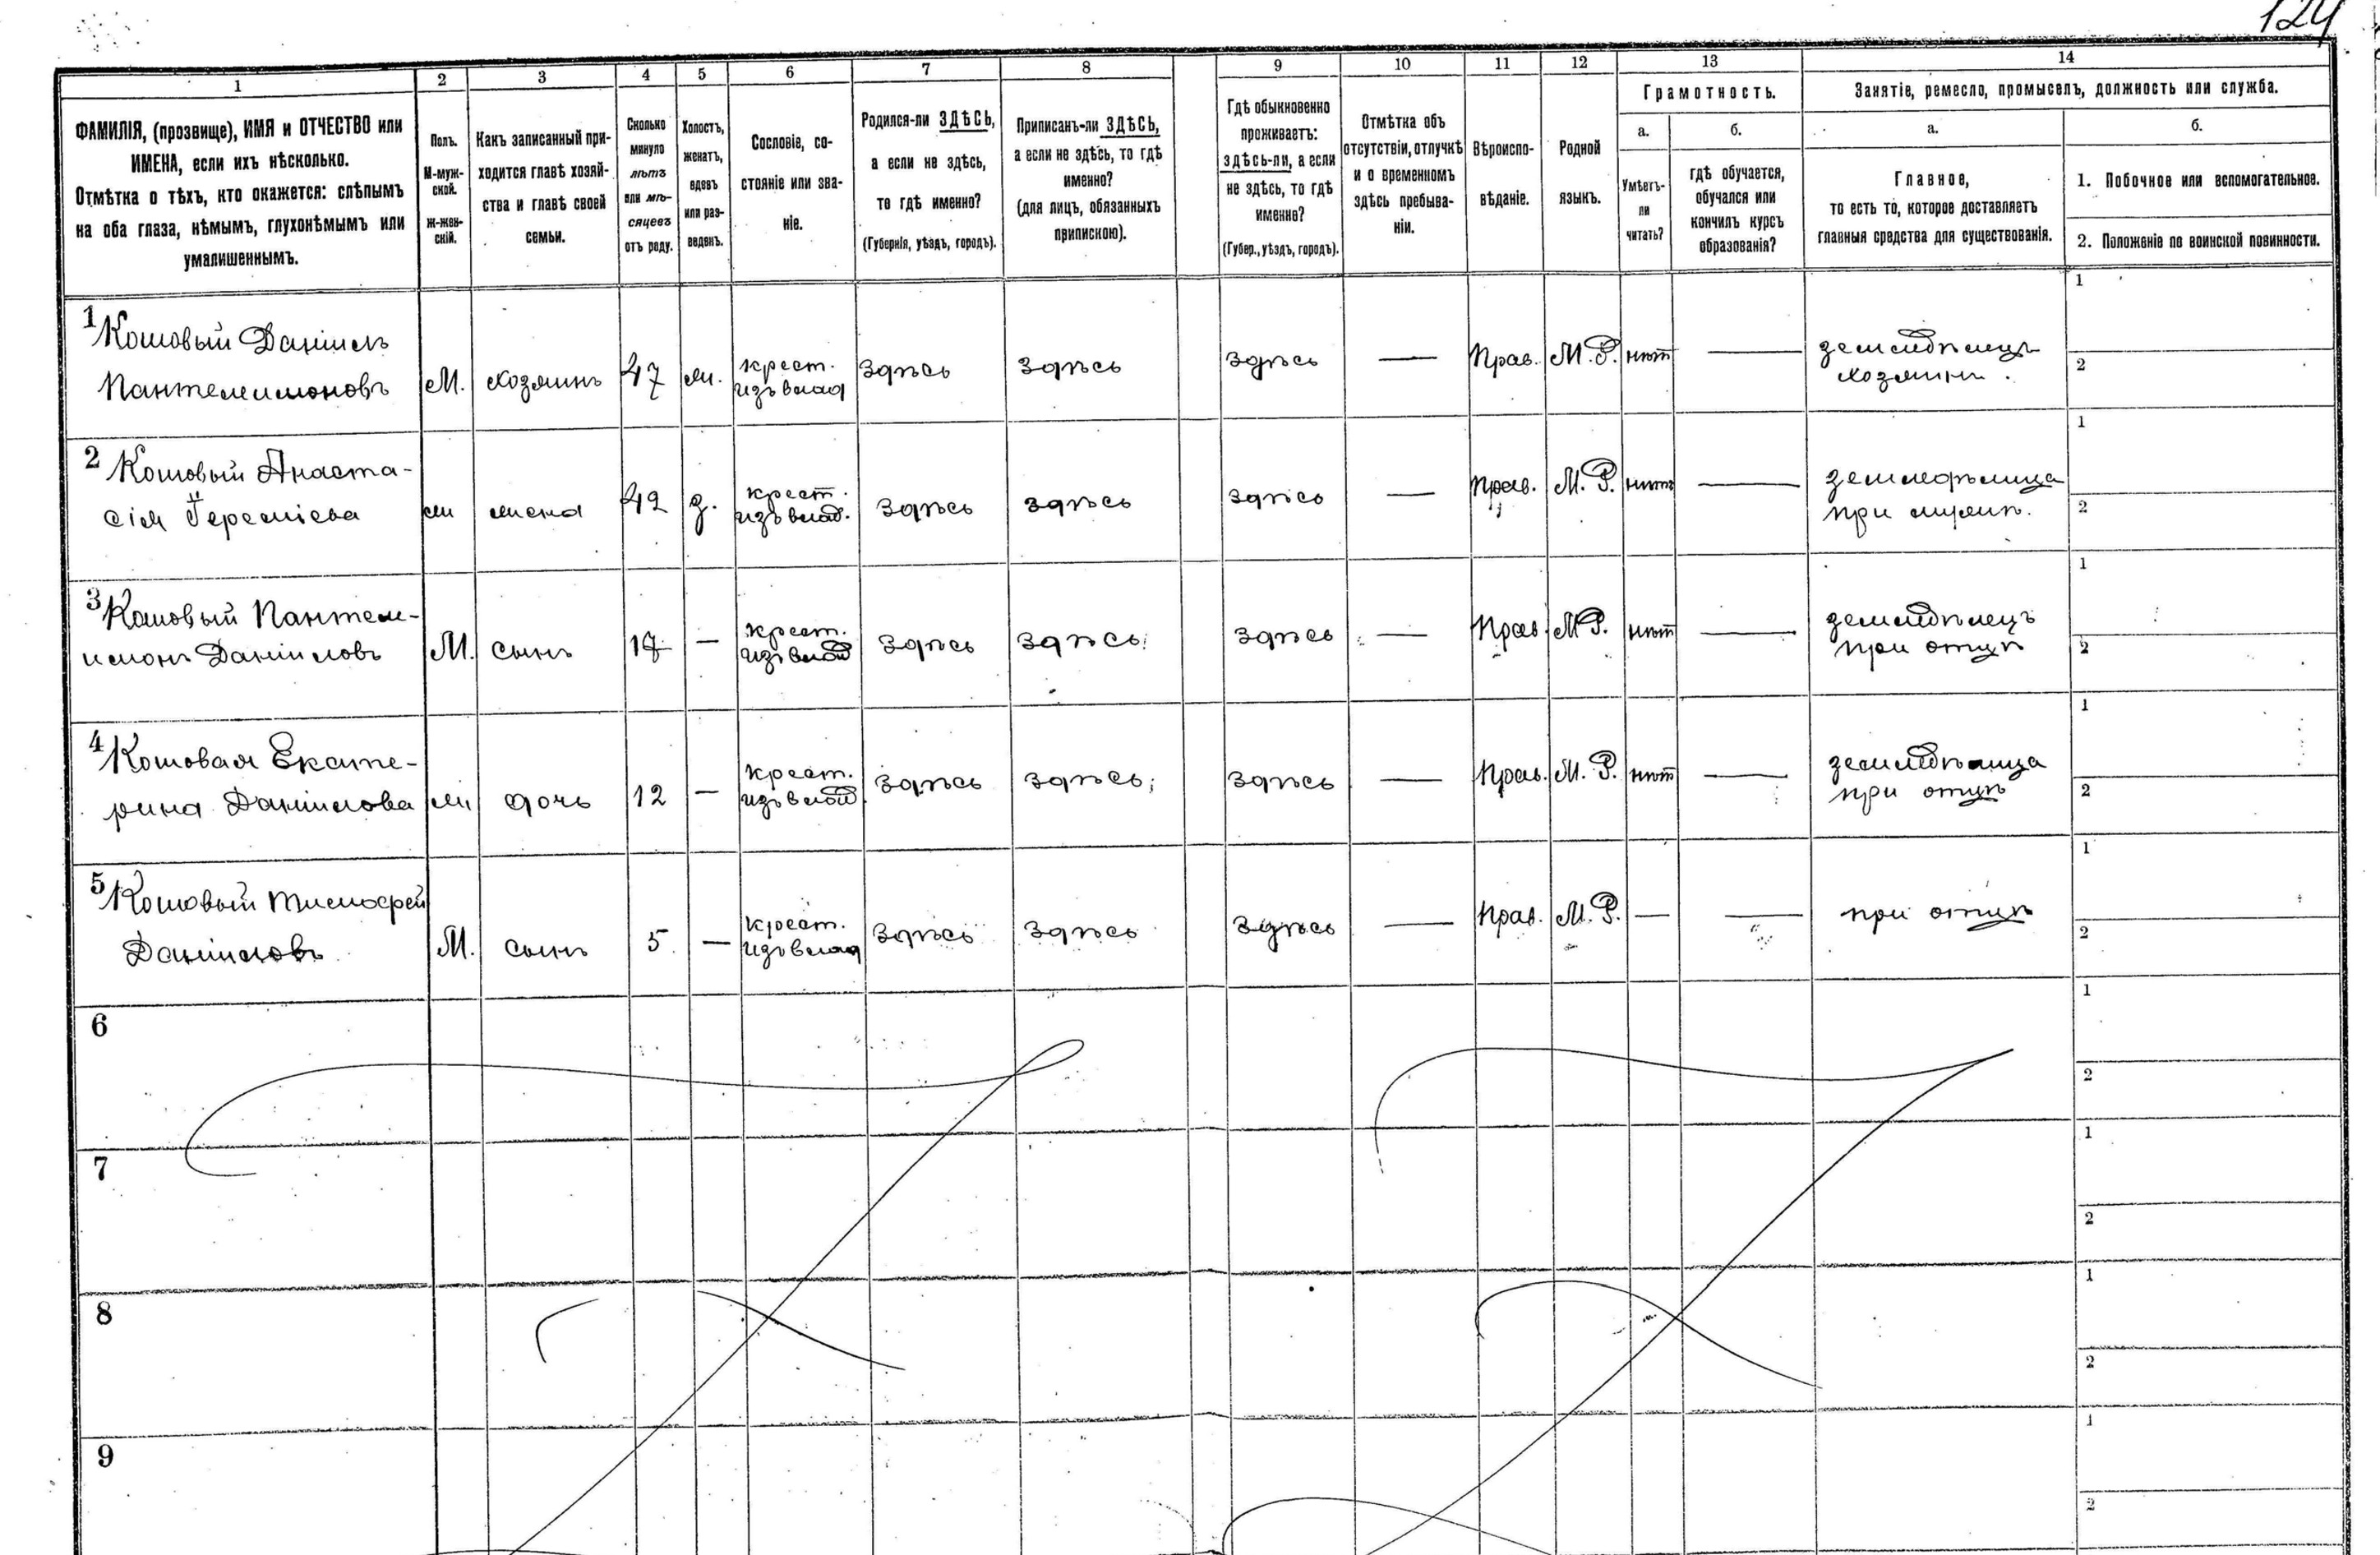 124
1
2
3
4
5
6
7
8
9
10
11
12
13
14
ФАМИЛІЯ, (прозвище), ИМЯ и ОТЧЕСТВО или
ИМЕНА, если ихъ нѣсколько.
Отмѣтка о тѣхъ, кто окажется: слѣпымъ
на оба глаза, нѣмымъ, глухонѣмымъ или
умалишеннымъ.
Полъ.
М-муж-
ской.
Ж-жен-
скій.
Какъ записанный при-
ходится главѣ хозяй-
ства и главѣ своей
семьи.
Сколько
минуло
лѣтъ
или мѣ-
сяцевъ
отъ роду.
Холостъ,
женатъ,
вдовъ
или раз-
веденъ.
Сословіе, со-
стояніе или зва-
ніе.
Родился-ли ЗДѢСЬ,
а если не здѣсь,
то гдѣ именно?
(Губернія, уѣздъ, городъ).
Приписанъ-ли ЗДѢСЬ,
а если не здѣсь, то гдѣ
именно?
(для лицъ, обязанныхъ
припискою).
Гдѣ обыкновенно
проживаетъ:
здѣсь-ли, а если
не здѣсь, то гдѣ
именно?
(Губер., уѣздъ, городъ).
Отмѣтка объ
отсутствіи, отлучкѣ
и о временномъ
здѣсь пребыва-
ніи.
Вѣроиспо-
вѣданіе.
Родной
языкъ.
Грамотность.
а.
б.
Умѣетъ-
ли
читать?
гдѣ обучается,
обучался или
кончилъ курсъ
образованія?
Занятіе, ремесло, промыселъ, должность или служба.
а.
б.
Главное,
то есть то, которое доставляетъ
главныя средства для существованія.
1. Побочное или вспомогательное.
2. Положеніе по воинской повинности.
1
Кошовый Даніилъ
Пантелеимоновъ
М.
хозяинъ
47
ж.
крест.
изъ влад
здѣсь
здѣсь
здѣсь
—
Прав.
М. Р.
нѣт
—
земледѣлецъ
хозяинъ.
1
2
2
Кошовый Анаста-
сія Іереміева
ж
жена
42
з.
крест.
изъ влад.
здѣсь
здѣсь
здѣсь
—
Прав.
М. Р.
нѣтъ
—
земледѣлица
при мужѣ.
1
2
3
Кошовый Пантеле-
имонъ Даніиловъ
М.
сынъ
17
—
крест.
изъ влад
здѣсь
здѣсь
здѣсь
—
Прав.
М Р.
нѣт
—
земледѣлецъ
при отцѣ
1
2
4
Кошовая Екате-
рина Даніилова
ж
дочь
12
—
крест.
изъ влад
здѣсь
здѣсь
здѣсь
—
Прав.
М. Р.
нѣт
—
земледѣлица
при отцѣ
1
2
5
Кошовый Тимофей
Даніиловъ
М.
сынъ
5
—
крест.
изъ влад
здѣсь
здѣсь
здѣсь
—
Прав.
М. Р.
—
—
при отцѣ
1
2
6
1
2
7
1
2
8
1
2
9
1
2